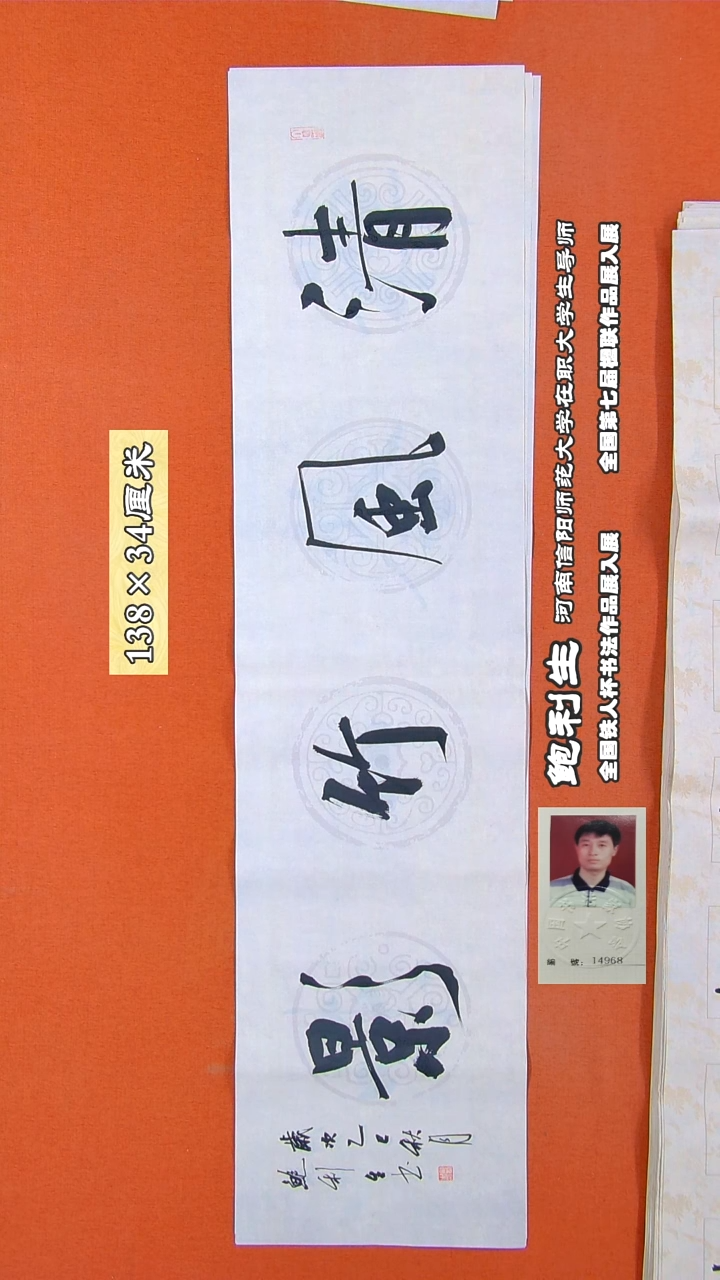 138×34厘米
清風竹影
歲次乙巳秋月
鲍利生书
鲍利生 河南信阳师范大学在职大学生导师
全国铁人杯书法作品展入展 全国第七届楹联作品展入展
14968